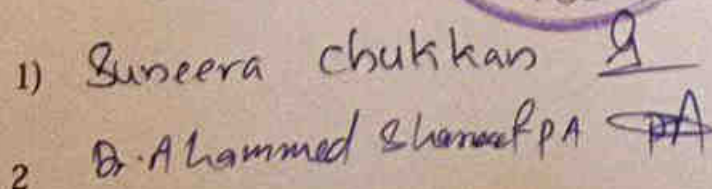 1) Suneera chukkan
2 Dr. Ahammed Shareef PA